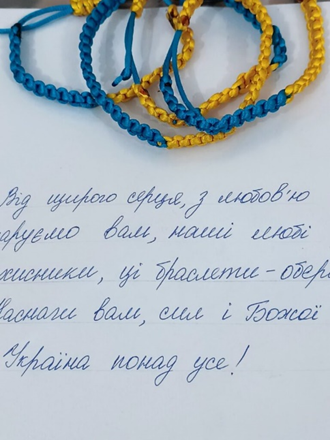 Від щирого серця, з любов'ю
даруємо вам, наші любі
захисники, ці браслети-обере
Наснаги вам, сил і Божої
Україна понад усе!